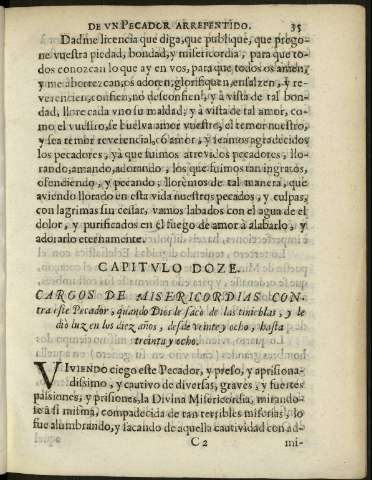 DE VN PECADOR ARREPENTIDO. 35
Dadme licencia que diga, que publique, que prego-
ne vuestra piedad, bondad, y misericordia, para que to-
dos conozcan lo que ay en vos, para que todos os amen,
y me aborrezcan, os adoren, glorifiquen, ensalzen, y re-
verencien, confien, no desconfien, y à vista de tal bon-
dad, llore cada vno su maldad, y à vista de tal amor, co-
mo el vuestro, se buelva amor vuestro, el temor nuestro,
y sea temor reverencial, cō amor, y seamos agradecidos
los pecadores, yà que fuimos atrevidos pecadores, llo-
rando, amando, adorando, los que fuimos tan ingratos,
ofendiendo, y pecando; llorèmos de tal manera, què
aviendo llorado en esta vida nuestros pecados, y culpas,
con lagrimas sin cessar, vamos labados con el agua de el
dolor, y purificados en el fuego de amor à alabarlo, y
adorarlo eternamente.
CAPITVLO DOZE.
CARGOS DE MISERICORDIAS CON-
tra este Pecador, quando Dios le sacò de las tinieblas, y le
diò luz en los diez años, desde veinte y ocho, hasta
treinta y ocho.
VIVIENDO ciego este Pecador, y preso, y aprisiona-
dissimo, y cautivo de diversas, graves, y fuertes
passiones, y prisiones, la Divina Misericordia, mirando-
se à si misma, compadecida de tan terribles miserias, lo
fue alumbrando, y sacando de aquella cautividad con ad-
C 2 mi-